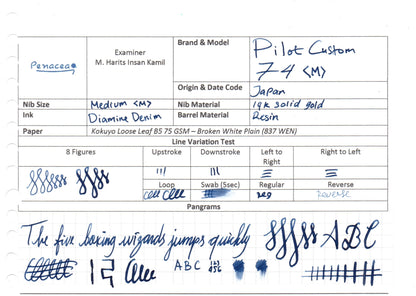 Penacea
Examiner
M. Harits Insan Kamil
Brand & Model
Pilot Custom
74 <M>
Origin & Date Code
Japan
Nib Size
Medium <M>
Nib Material
14k solid gold
Ink
Diamine Denim
Barrel Material
Resin
Paper
Kokuyo Loose Leaf B5 75 GSM – Broken White Plain (837 WEN)
Line Variation Test
8 Figures
Upstroke
Downstroke
Left to Right
Right to Left
Loop
Swab (5sec)
Regular
Reverse
reg
Reverse
Pangrams
The five boxing wizards jumps quickly
ABC
ABC
123
456